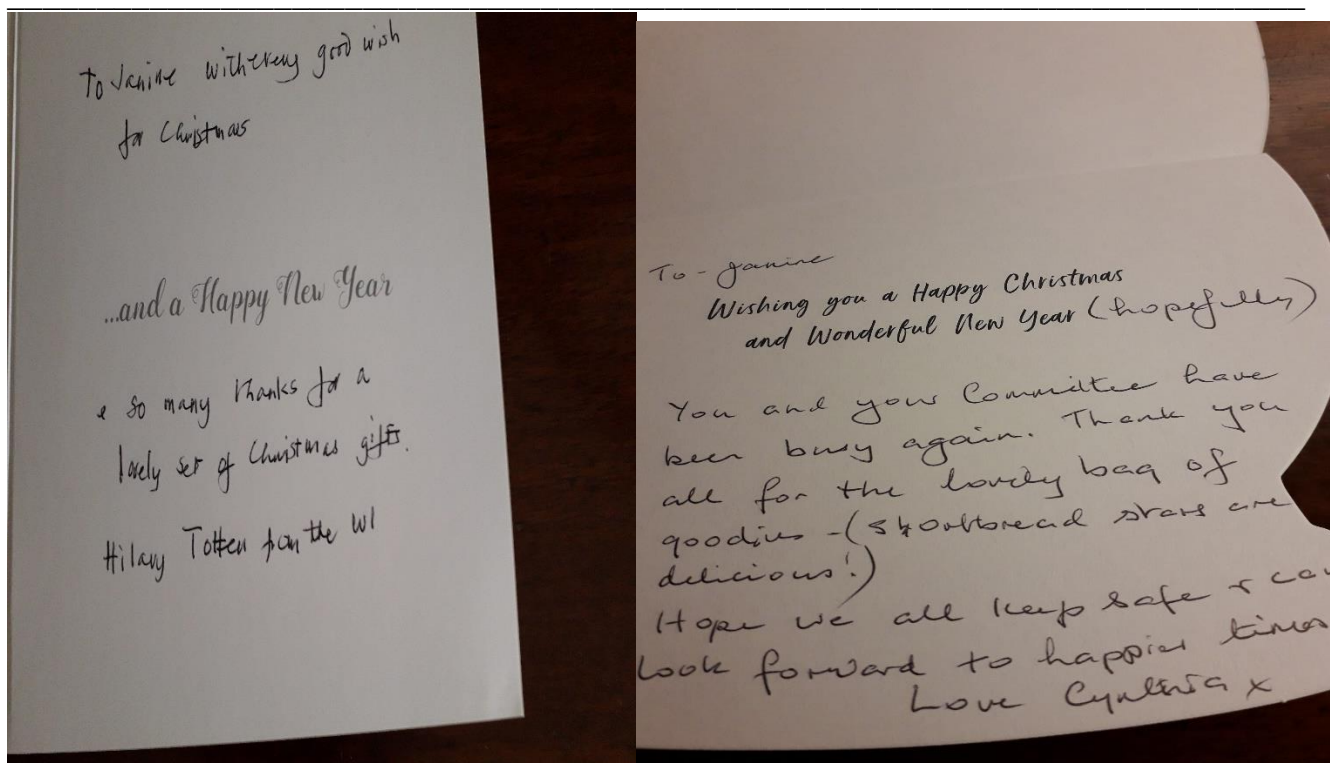 To Janine with every good wish
for Christmas
...and a Happy New Year
& so many thanks for a
lovely set of Christmas gifts.
Hilary Totten from the WI
To - Janine
Wishing you a Happy Christmas
and Wonderful New Year (hopefully)
You and your Committee have
been busy again. Thank you
all for the lovely bag of
goodies - (shortbread stars are
delicious!)
Hope we all keep safe &
Look forward to happier times
Love Cynthia x